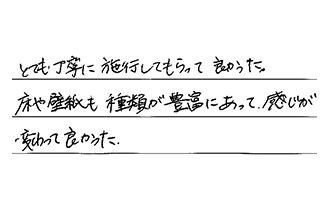 とても丁寧に施行してもらって良かった。
床や壁紙も種類が豊富にあって、感じが
変わって良かった。